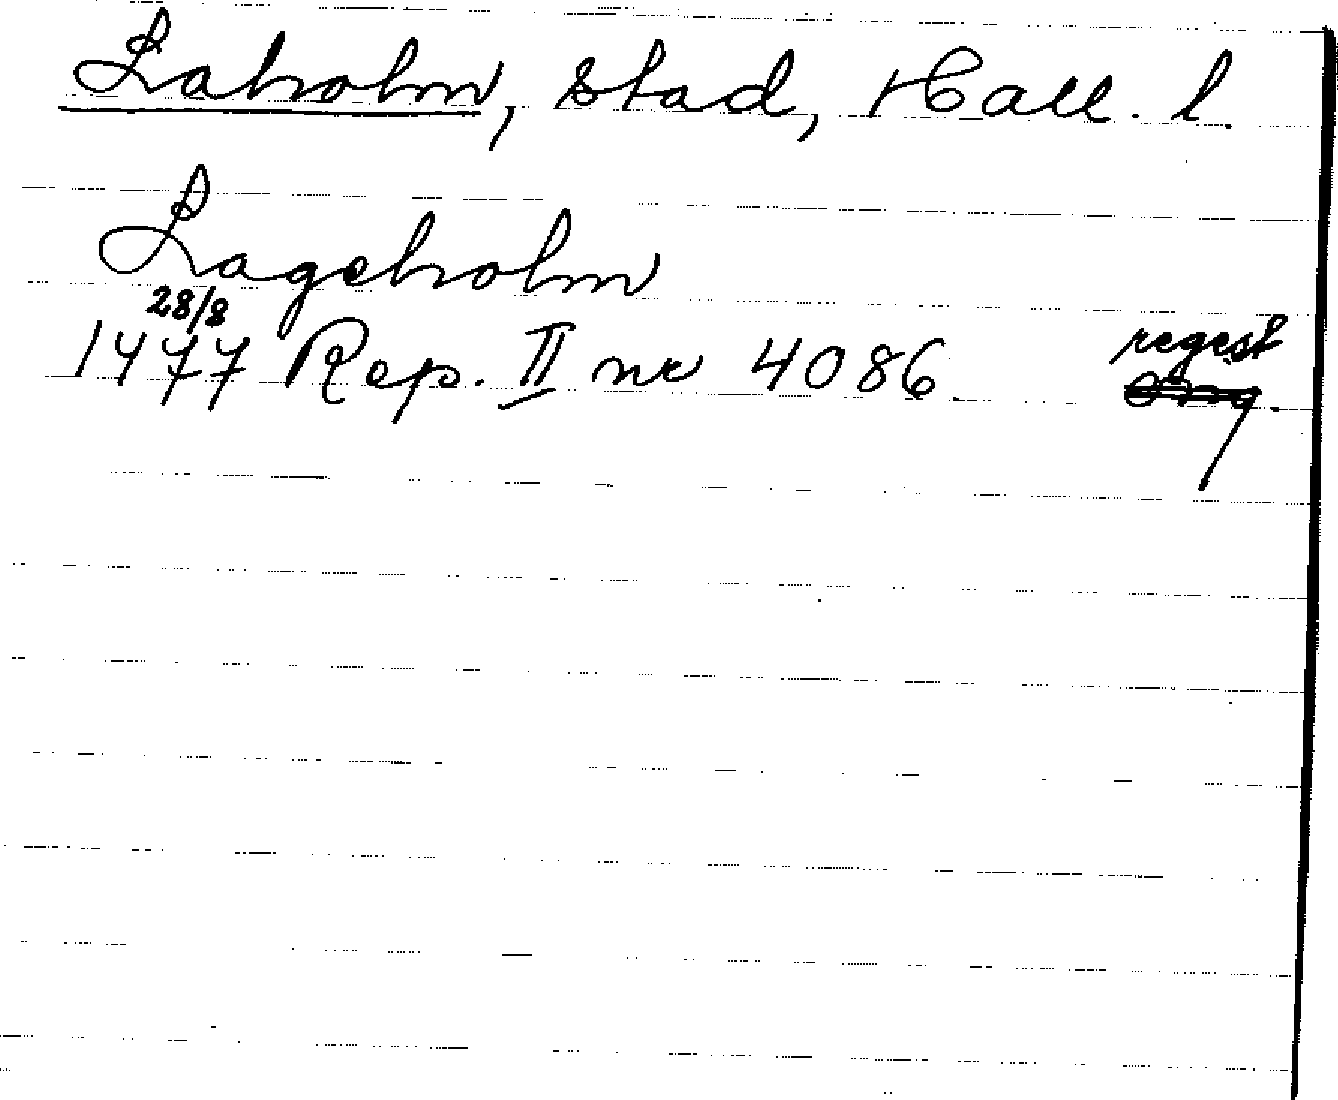 Laholm, stad, Hall. l.
Lageholm
28/8
1477 Rep. II nr 4086. regest